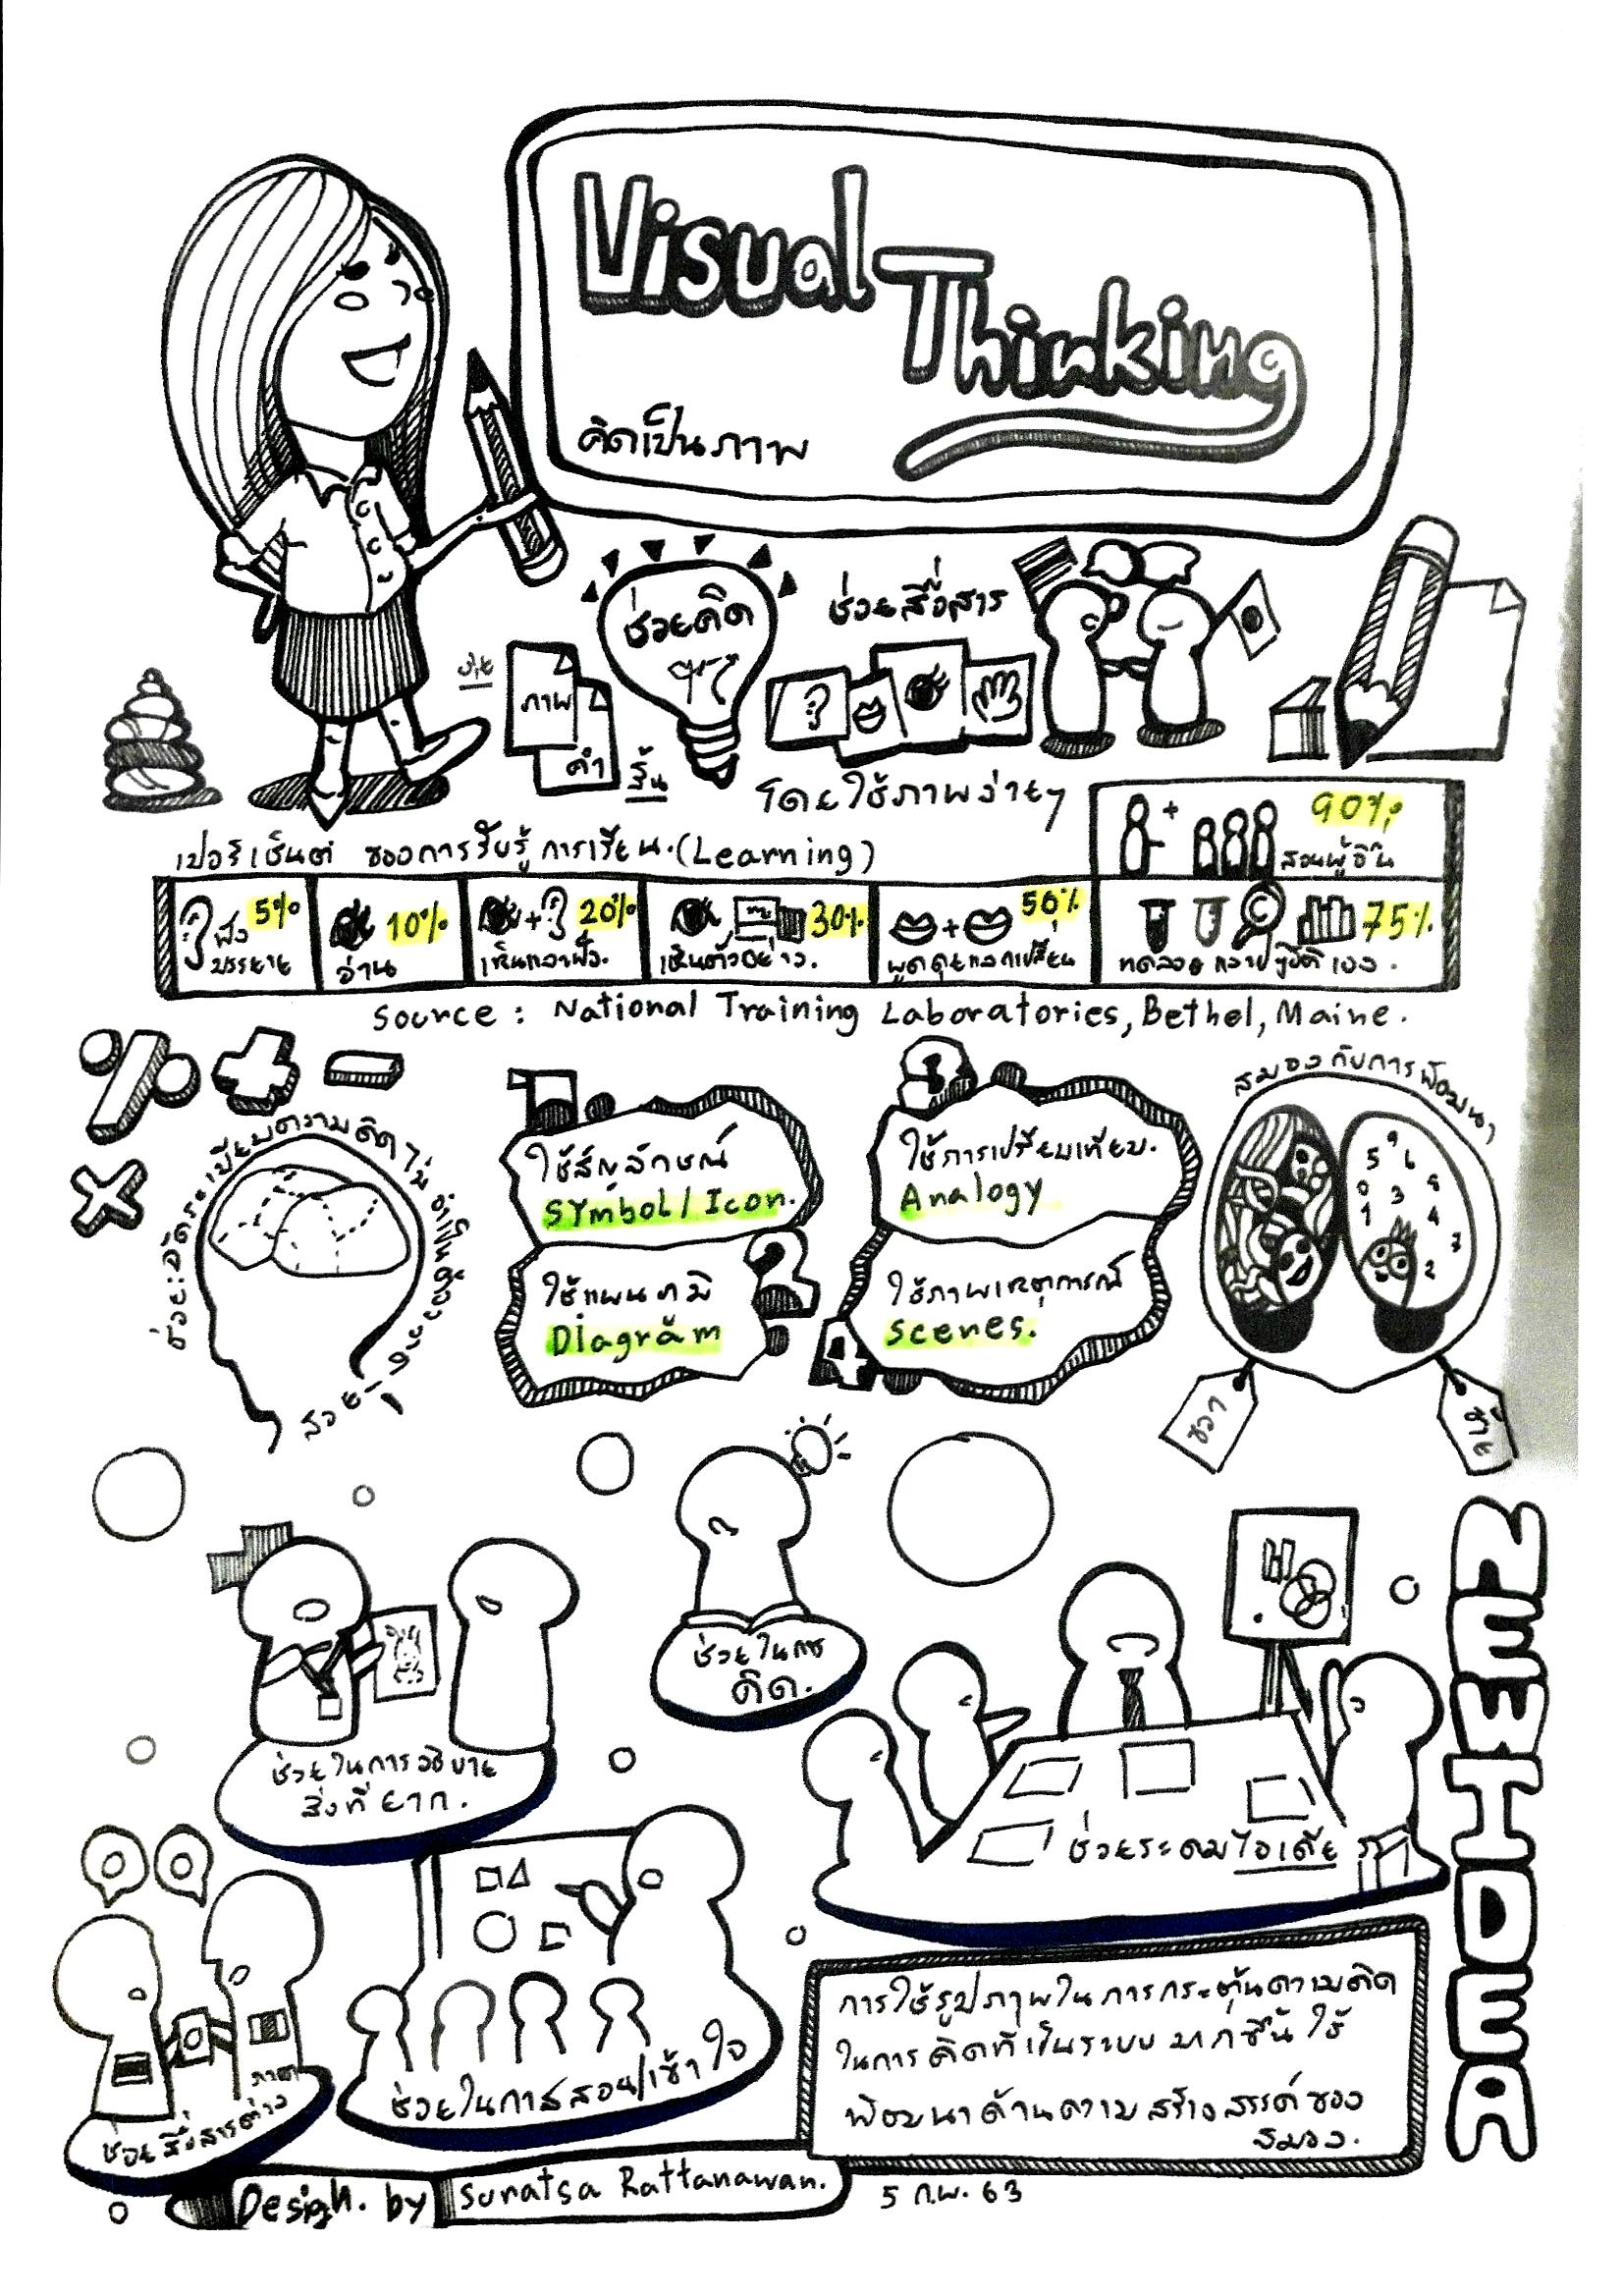 Visual
Thinking
คิดเป็นภาพ
ช่วยคิด
ช่วยสื่อสาร
ภาพ
คำ
สั้น
โดยใช้ภาพง่ายๆ
เปอร์เซ็นต์ ของการรับรู้การเรียน.(Learning)
90%
สอนผู้อื่น
5%
ฟัง
บรรยาย
10%
อ่าน
20%
เห็นและฟัง.
30%
เห็นตัวอย่าง.
50%
พูดคุยแลกเปลี่ยน
75%
ทดลองและปฏิบัติเอง.
Source : National Training Laboratories, Bethel, Maine.
ช่วย:จัดระเบียบความคิดไม่จำเป็นต้องวาด
สวย
1
ใช้สัญลักษณ์
Symbol/Icon.
2
ใช้แผนภูมิ
Diagram
3
ใช้การเปรียบเทียบ.
Analogy
4
ใช้ภาพเหตุการณ์
Scenes.
สมองกับการพัฒนา
ขวา
ซ้าย
ช่วยในการ
คิด.
ช่วยในการอธิบาย
สิ่งที่ยาก.
ช่วยระดมไอเดีย
ช่วยสื่อสารต่าง
ภาษา
ช่วยในการสอน/เข้าใจ
NEW IDEA
การใช้รูปภาพในการกระตุ้นความคิด
ในการคิดที่เป็นระบบมากขึ้น ใช้
พัฒนาด้านความสร้างสรรค์ของ
สมอง.
Design. by Sunatsa Rattanawan.
5 ก.พ. 63